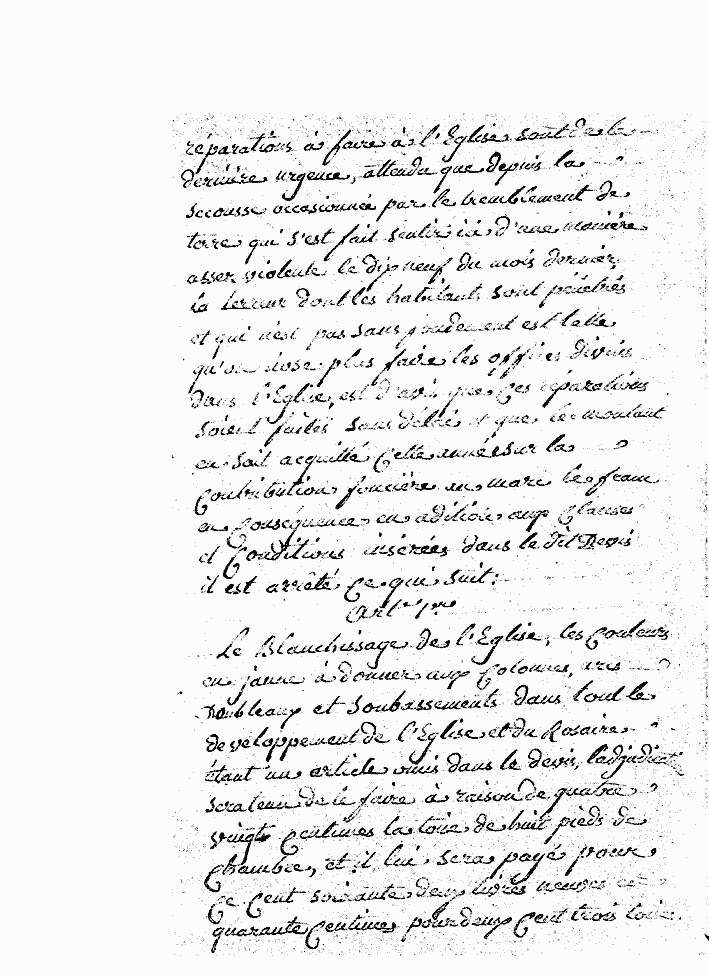 réparations à faire à l'Eglise sont de la
derniére urgence, attendu que depuis la
secousse occasionneé par le tremblement de
terre qui s'est fait sentir ici d'une maniére
asser violente le dix neuf du mois dernier,
la terreur dont les habitants sont pénétrés
et qui n'est pas sans fondement est telle
qu'on n'ose plus faire les offices divins
dans l'Eglise, est d'avis que ces réparations
soient faites sans délai et que le montant
en soit acquitté cette année sur la
Contribution fonciére au marc le franc
en Conséquence en adition aux Clauses
et Conditions insérées dans le dit Devis
il est arrêté Ce qui Suit:
Art. 1er
Le Blanchissage de l'Eglise, les Couleurs
en jaune à donner aux Colonnes, arcs
Doubleaux et Soubassements dans tout le
developpement de l'Eglise et du Rosaire
étant un article omis dans le devis, l'adjudicat.
sera tenu de le faire à raison de quatre
vingt Centimes la toise de huit pieds de
Chambre, et il lui sera payé pour
Ce Cent soixante deux livres neuves et
quarante Centimes pour deux Cent trois toises.